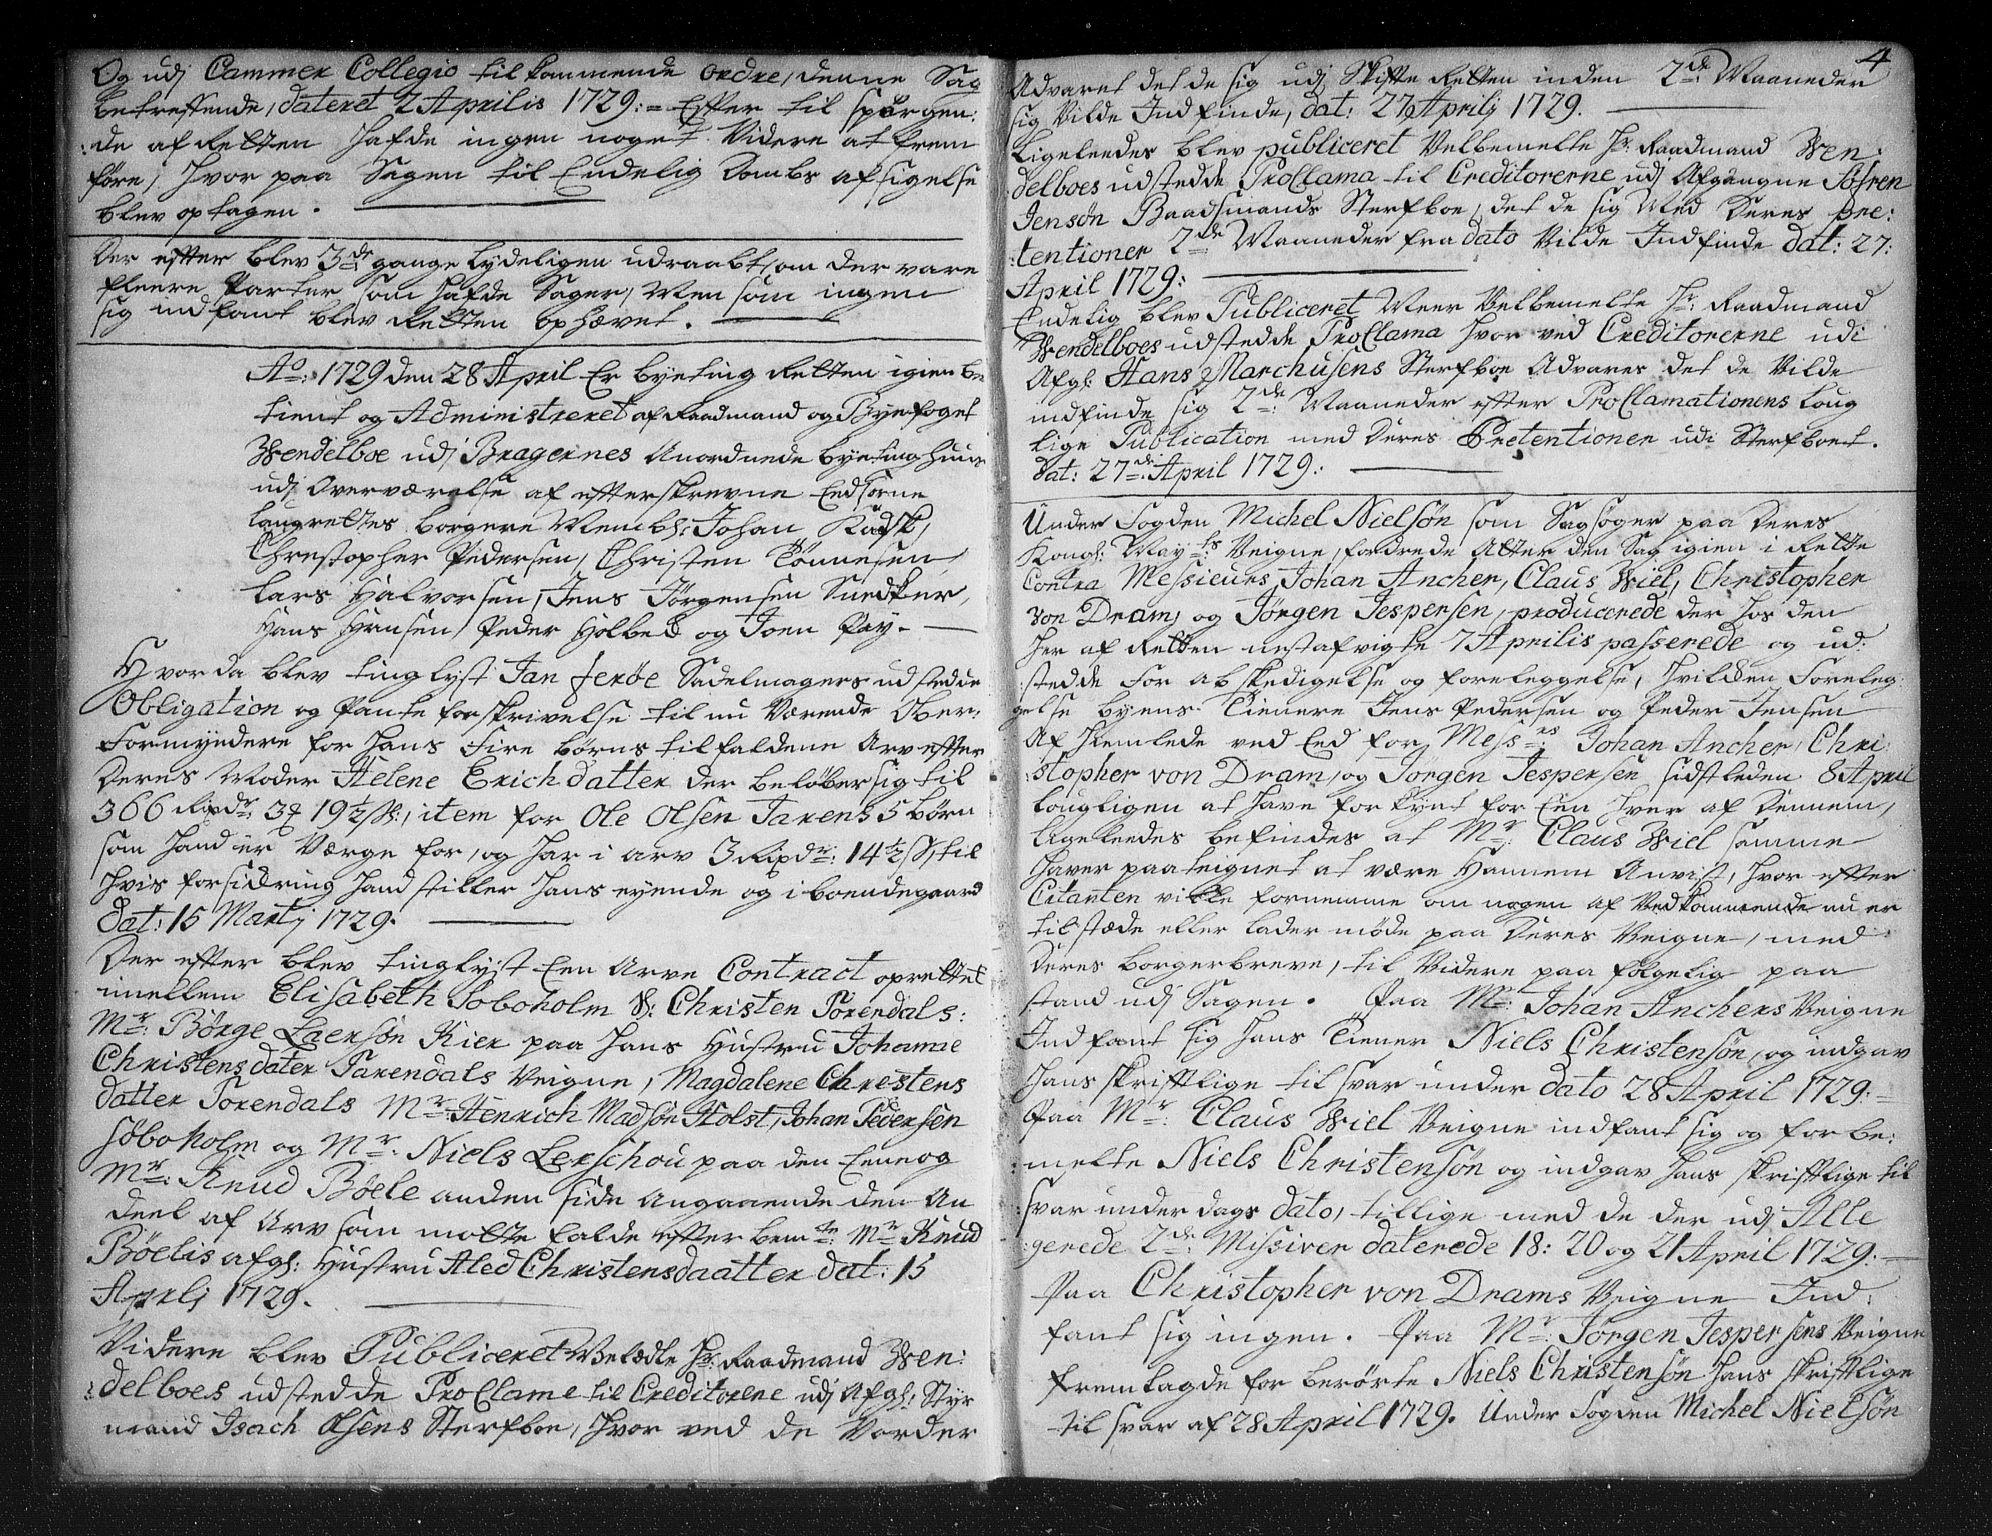 Og udj Cammer Collegio til kommende ordre, denne Sag
betreffende, dateret 2 Aprilis 1729:= Efter til spørgen:
:de af Retten hafde ingen noget Videre at frem
føre, hvor paa Sagen til Endelig Dombs afsigelse
blev optagen.
Der efter blev 3de gange lydeligen udraabt, om der vare
fleere Parter som hafde Sager, Men som ingen
sig indfant blev Retten ophævet.
Ao: 1729 den 28 April Er byeting Retten igien be
tient og Administreret af Raadmand og Byefoget
Wendelboe udj Bragernes Anordnede byetinghuus
udj Overværelse af efterskrevne Eedsorne
laugrettes borgere Nembl: Johan Kådsk,
Christopher Pedersen, Christen Tönnesen,
Lars Halvorsen, Jens Jörgensen Snedker,
Hans Hansen, Peder Holbek og Joen Pay.
Hvor da blev tinglyst Jan ferøe Sadelmagers udstedde
Obligation og Pante forskrivelse til nu Værende Ober-
formyndere for hans fire börns tilfaldene Arv efter
Deres Moder Helene Erichdatter der beløber sig til
366 Rixdr: 3 19½ s:, item for Ole Olsen Tarens 5 börn
som hand er Værge for, og har i arv 3 Rixdr: 14½ s, til
hvis forsickring hand stiller hans eyende og iboende gaard
dat: 15 Martj 1729.
Der efter blev tinglyst Een Arve Contract oprettet
imellem Elisabeth Soboholm S: Christen Torendals:
Mr: Börge Laersön Kier paa hans Hustru Johanne
Christensdater Tarendals Veigne, Magdalene Christens
datter Torendals Mr: Henrich Madsön Holst, Johan Pedersen
Söboholm og Mr: Niels Lerschou paa den Eene og
Mr: Knud Böele anden side angaaende den An
deel af Arv som motte falde efter bemte: Mr Knud
Böelis afgl: Hustru Aled Christensdaatter dat: 15
Aprlj 1729.
Videre blev Publiceret Velædle Hr: Raadmand Wen:
:delboes udstedde Proclame til Creditorene udj Afgl: Styr
mand Isach Olsens Sterfboe, hvor ved de Vorder
4
Advaret det de sig udj Skifte Retten inden 2de Maaneder
sig Vilde Indfinde, dat: 27 Aprilj 1729.
Ligeleedes blev publiceret Velbemelte Hr: Raadmand Wen:
delboes udstedde Proclama til Creditorerne udj Afgangne Söfren
Jensön Baadsmands Sterfboe, det de sig Med Deres pre:
:tentioner 2de Maaneder fra dato Vilde Indfinde dat: 27:
April 1729:
Endelig blev Publiceret Meer Velbemelte Hr: Raadmand
Wendelboes udstedde Proclama hvor ved Creditorerne udi
Afgl: Hans Marchusens Sterfboe Advares det de Vilde
indfinde sig 2de: Maaneder efter Proclamationens loug
lige Publication med Deres Pretentioner udi Sterfboet.
Dat: 27de: April 1729:
Under Fogden Michel Nielsön som Sagsöger paa Deres
Kongl: Mayts: Veigne, fordrede Atter den Sag igien i Rette
Contra Messieurs Johan Ancher, Claus Wiel, Christopher
von Dram, og Jörgen Jespersen, producerede der hos den
her af Retten nestafvigte 7 Aprilis passerede og ud:
:stedde for abskedigelse og foreleggelse, hvilcken foreleg
gelse byens Tienere Jens Pedersen og Peder Jensen
Af hiemlede ved Eed for Messrs: Johan Ancher, Chri:
:stopher von Dram, og Jörgen Jespersen sidstleden 8 April
lougligen at have forkynt for Een hver af Dennem,
Ligeleedes befindes at Mr: Claus Wiel samme
haver paateignet at være Hannem Anvist, hvor efter
Citanten ville fornemme om nogen af Vedkommende nu er
tilstæde eller lader møde paa Deres Veigne, med
Deres borgerbreve, til Videre paafölgelig paa
stand udj Sagen. Paa Mr: Johan Anchers Veigne
Indfant sig hans Tiener Niels Christensön, og indgav
hans skriftlige tilsvar under dato 28 April 1729:=
Paa Mr: Claus Wiel Veigne indfant sig og forbe:
:melte Niels Christensön og indgav hans skriftlige til
:svar under dags dato, tillige med de der udj Alle
:gerede 2de: Missiver daterede 18: 20 og 21 April 1729:
Paa Christopher von Drams Veigne Ind:
fant sig ingen. Paa Mr: Jörgen Jespersens Veigne
fremlagde forberörte Niels Christensön hans skriftlige
tilsvar af 28 April 1729. Under Fogden Michel Nielsön